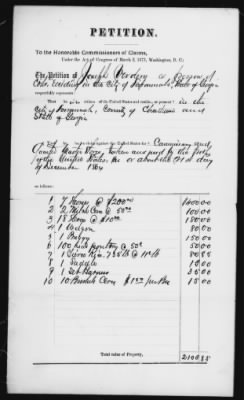 PETITION.
To the Honorable Commissioners of Claims,
Under the Act of Congress of March 3, 1871, Washington, D. C.:
The Petition of Joseph a Person of
Color, residing in the City of Savannah, State of Georgia
respectfully represents:
That he is a citizen of the United States and resides, at present, in the
City of Savannah, County of Chatham and
State of Georgia
against the United States for Commissary and
Quarter Master Stores, taken and used by the Army
of the United States, on or about the 21st day
of December 1864
as follows:
1 @ $200 1400.00
2 2 Milch Cows @ 50.00 100.00
3 18 Hogs @ $10.00 180.00
4 1 Wagon 80.00
5 1 15.00
6 100 poultry @ 50¢ 50.00
7 1 Tierce Rice, 735 lb @ 11¢ lb 80.85
8 1 Saddle 15.00
9 1 Set Harness 35.00
10 10 Bushels Corn $1.50 per Bus 15.00
Total value of Property,